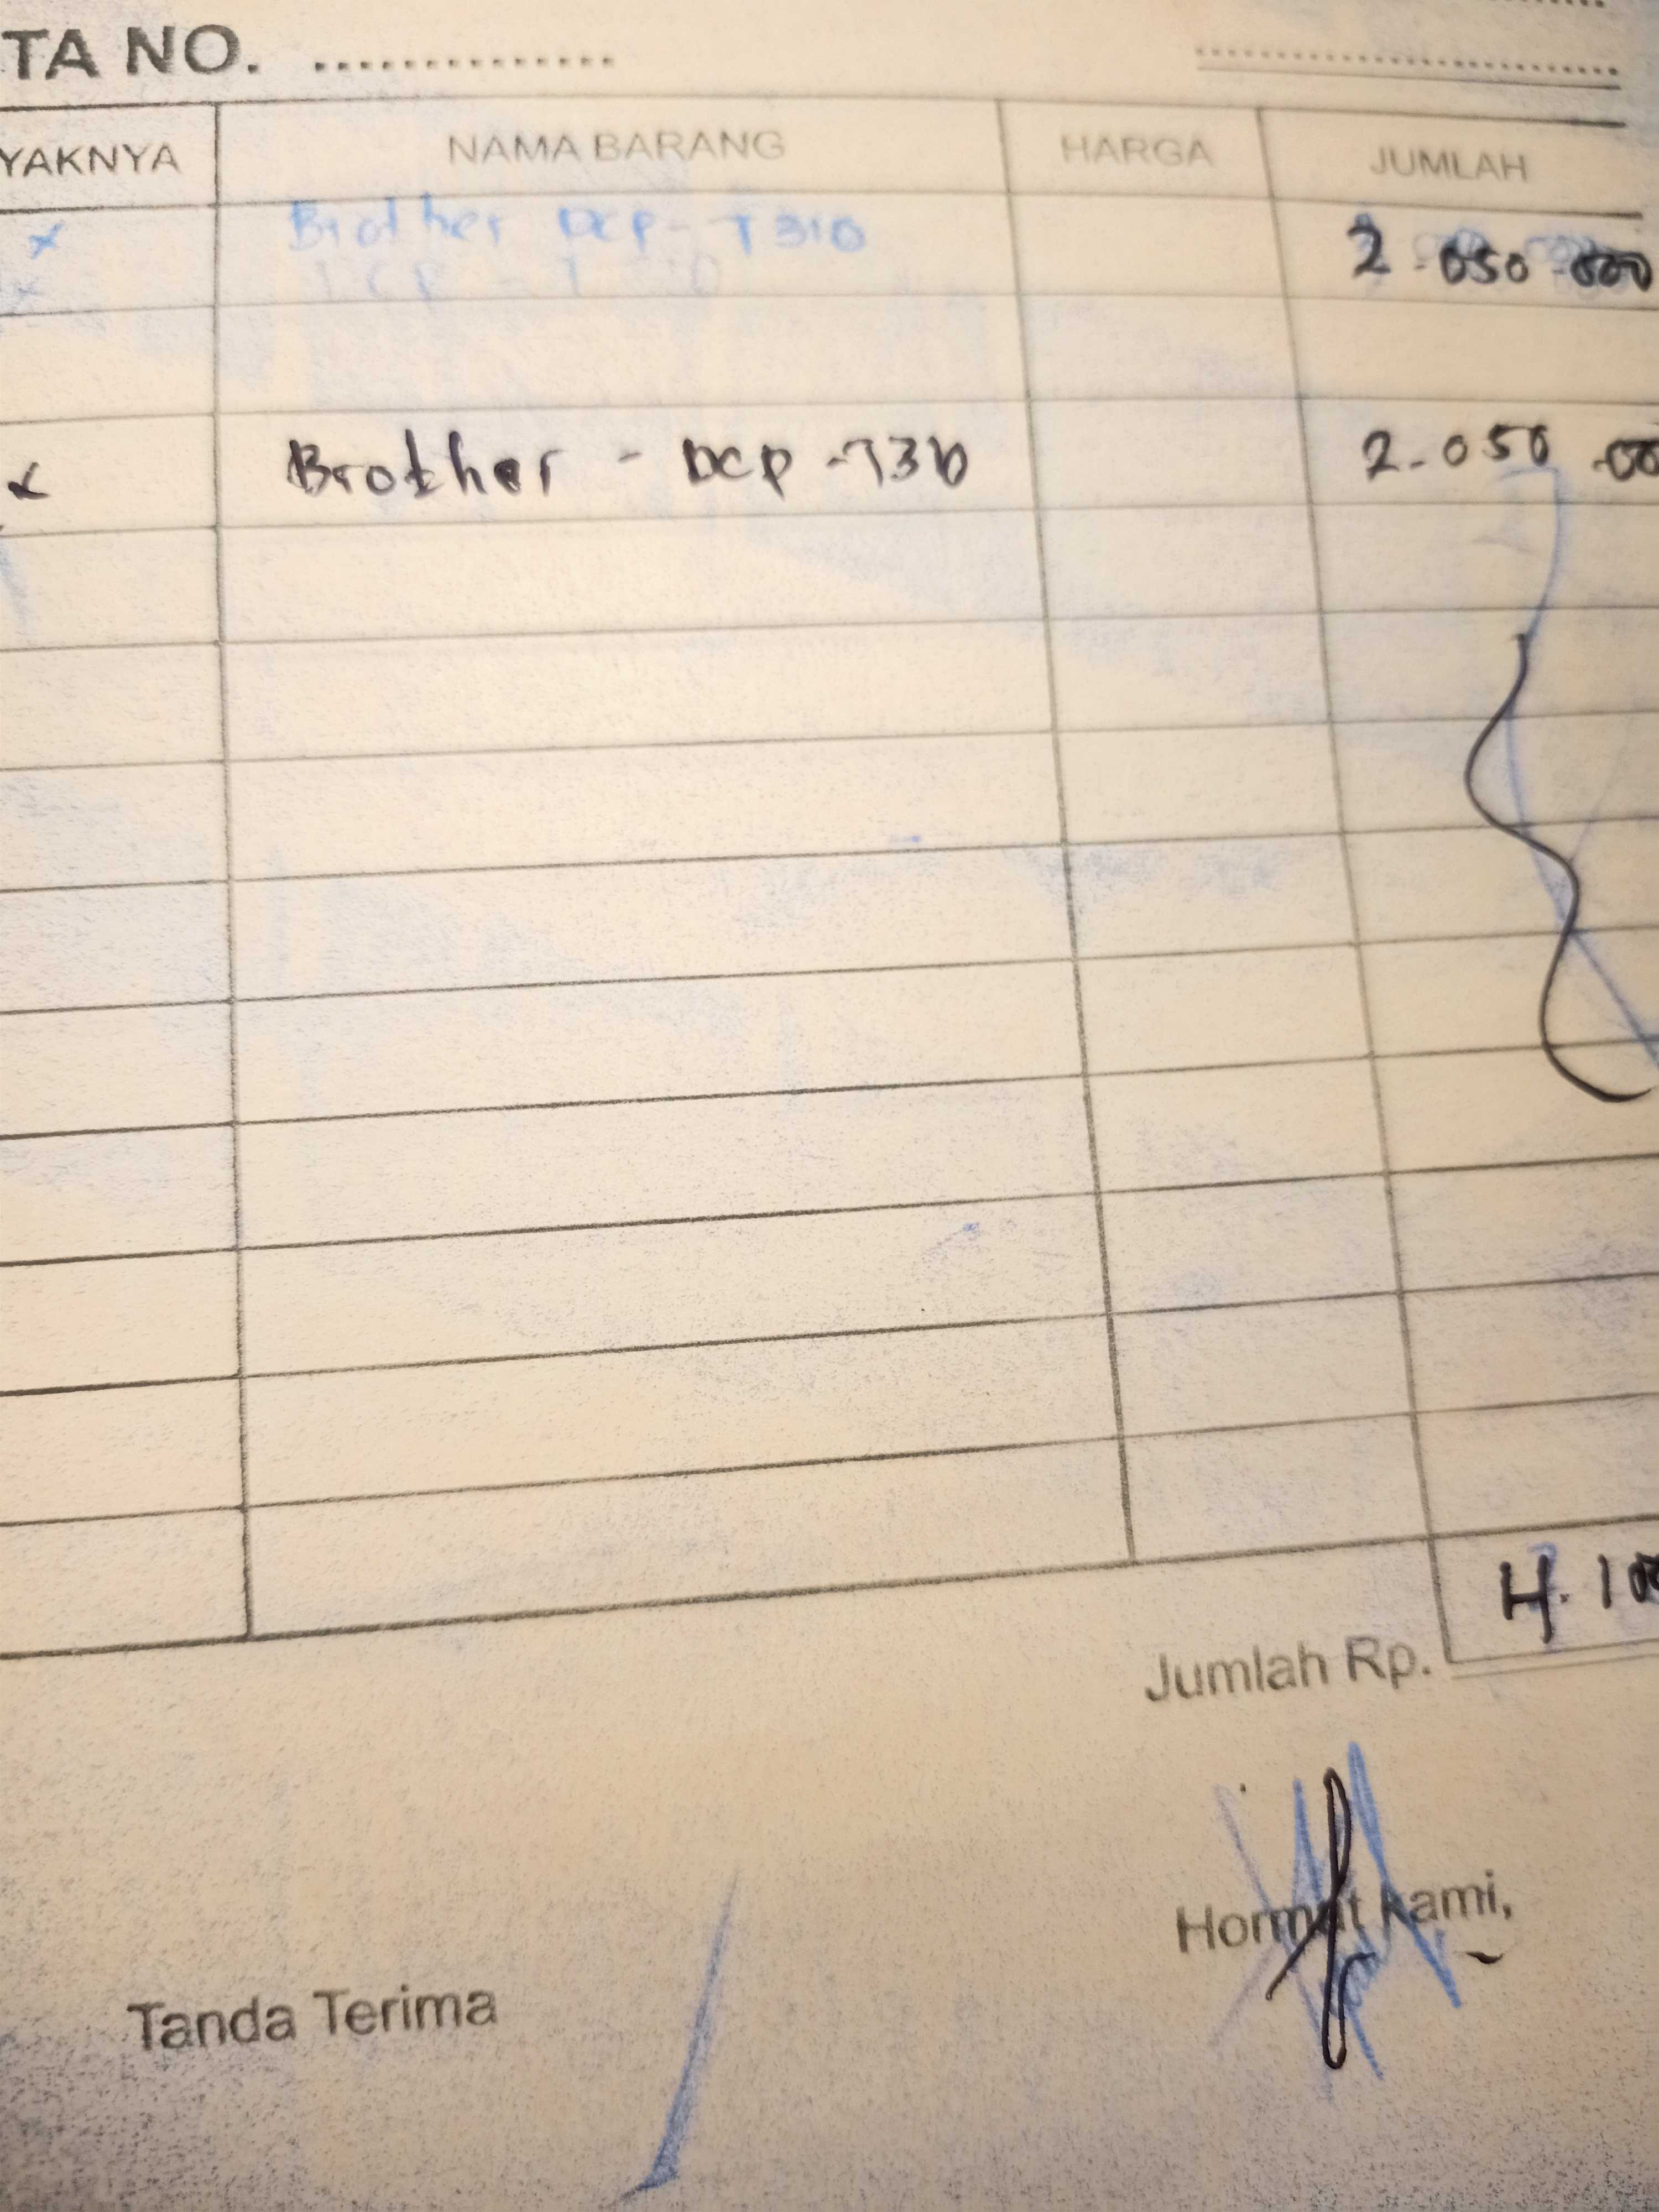 TA NO. ..............
YAKNYA NAMA BARANG HARGA JUMLAH
x Brother DCP- T310 2.050.000
x Brother - DCP -T310 2.050.00
Jumlah Rp. 4.100
Tanda Terima
Hormat kami,